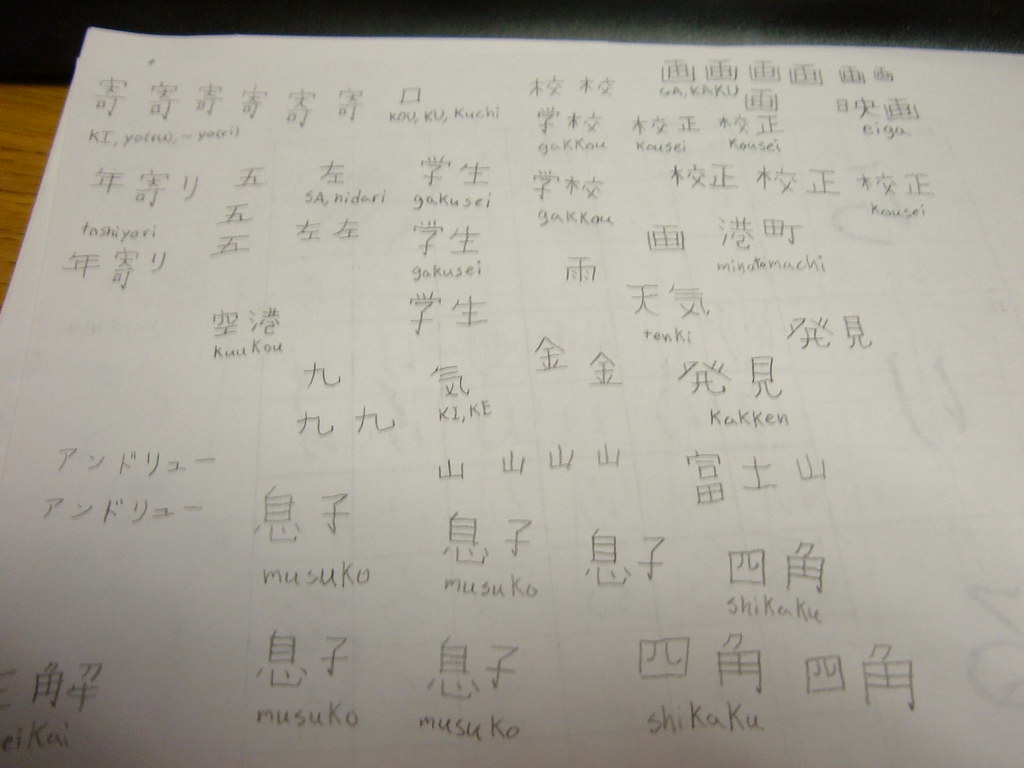 画 画 画 画 画 画
寄 寄 寄 寄 寄 寄 口 校 校 GA, KAKU 画
KI, yo(ru), ~yo(ri) KOU, KU, Kuchi 学校 校正 校正 映画
gakkou kousei kousei eiga
年寄り 五 左 学生 学校 校正 校正 校正
SA, hidari gakusei gakkou kousei
toshiyori 五 左 左 学生 画 港町
年寄り 五 gakusei 雨 minatomachi
空港 学生 天気 発見
kuukou tenki
九 気 金 金 発見
九 九 KI, KE Kakken
アンドリュー 山 山 山 山 富士山
アンドリュー 息子 息子 息子 四角
musuko musuko shikaku
息子 息子 四角 四角
musuko musuko shikaku
正解
eikai